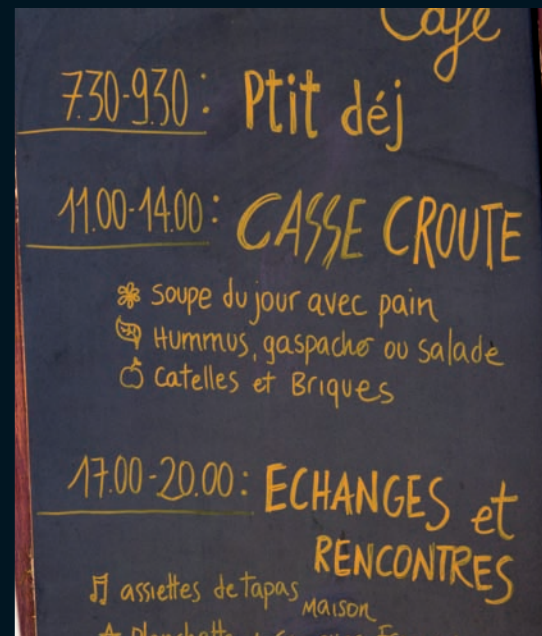 Café
7.30-9.30: Ptit déj
11.00-14.00: CASSE CROUTE
Soupe du jour avec pain
Hummus, gaspacho ou salade
Catelles et Briques
17.00-20.00: ECHANGES et
RENCONTRES
assiettes de tapas
Maison